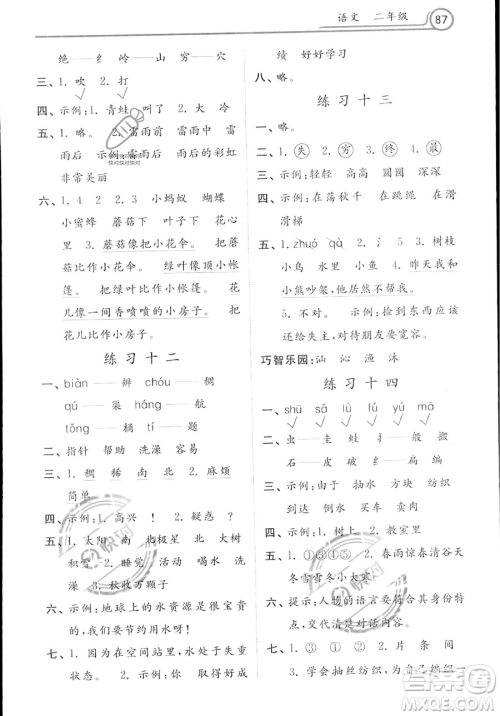 语文 二年级 87
绝——线——山——穷——穴
三、1. 吵 2. 打
四、示例:1. 青蛙 叫了 2. 大风 尾巴
五、1. 地 2. 雷雨前 雷雨中 雷
雨后 示例:雷雨后 雷雨后的彩虹
非常美丽
六、1. 4 2 2. 小蚂蚁 蝴蝶
小蜜蜂 蘑菇 叶子 花心
里 3. 蘑菇像把小花伞。 蘑
菇比作小花伞。 绿叶像顶小帐
篷。 把绿叶比作小帐篷。 花
儿像一间香喷喷的小房子。 把
花儿比作小房子。
练习十二
一、biàn —— 辨 chóu —— 稠
qú —— 渠 háng —— 航
tǒng —— 稻
二、指针 帮助 洗澡 容易
三、1. 稠 稀 南 北 2. 麻烦
简单
四、示例:1. 高兴! 2. 疑惑?
五、1. 太阳 南 北极星 北 大树
积雪 2. 睡觉 活动 喝水 洗
澡 3. 秋收万颗子
六、示例:地球上的水资源是很宝贵
的,我们要节约用水!
七、1. 因为在空间站里,中国重要
2. 因为 示例:你 取得好成
绩 好好学习
八、略。
练习十三
一、略。
二、1. 失 2. 穷 3. 终 4. 最
三、示例:轻轻 高高 圆圆 深深
四、示例:在荡秋千 在跳绳 在滑
滑梯
五、1. zhuó qǜ 2. 3. 树枝
小鸟 小鱼 4. 昨天我和
小熊吵架了,他现在还生我的气
5. 不对。 示例:捡到东西应该
还给失主,对待朋友要宽容。
巧智乐园:汕 沁 渔 泳
练习十四
一、shū sǎ yú mā
二、虫——圭——蛙 扌——般——搬
石——皮——破 纟——扁——编
三、示例:由于 抽出 方块 纺织
到达 倒水 买卖 卖东西
四、示例:1. 树上 2. 教室里
五、1. ①③④⑤ 2. 春雨惊春清谷天
冬雪雪冬小大寒
六、提示:人物的语言要符合其身份特
点,创设情境对话。
七、1. ③①④② 2. 片 条 间
3. 学会抽丝纺织,我终于成功了